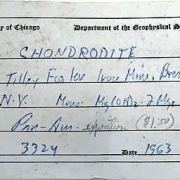 y of Chicago Department of the Geophysical S
CHONDRODITE
Tilley Foster Iron Mine, Brew
N.Y. Mg(OH)2 · 2 Mg
Pan-Am. exposition ($1.50)
3324 Date 1963